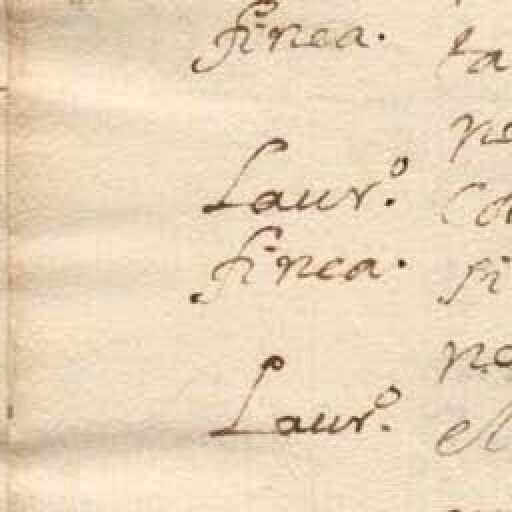 finea. ta
Laur.º co
finea. si
no
Laur.º el